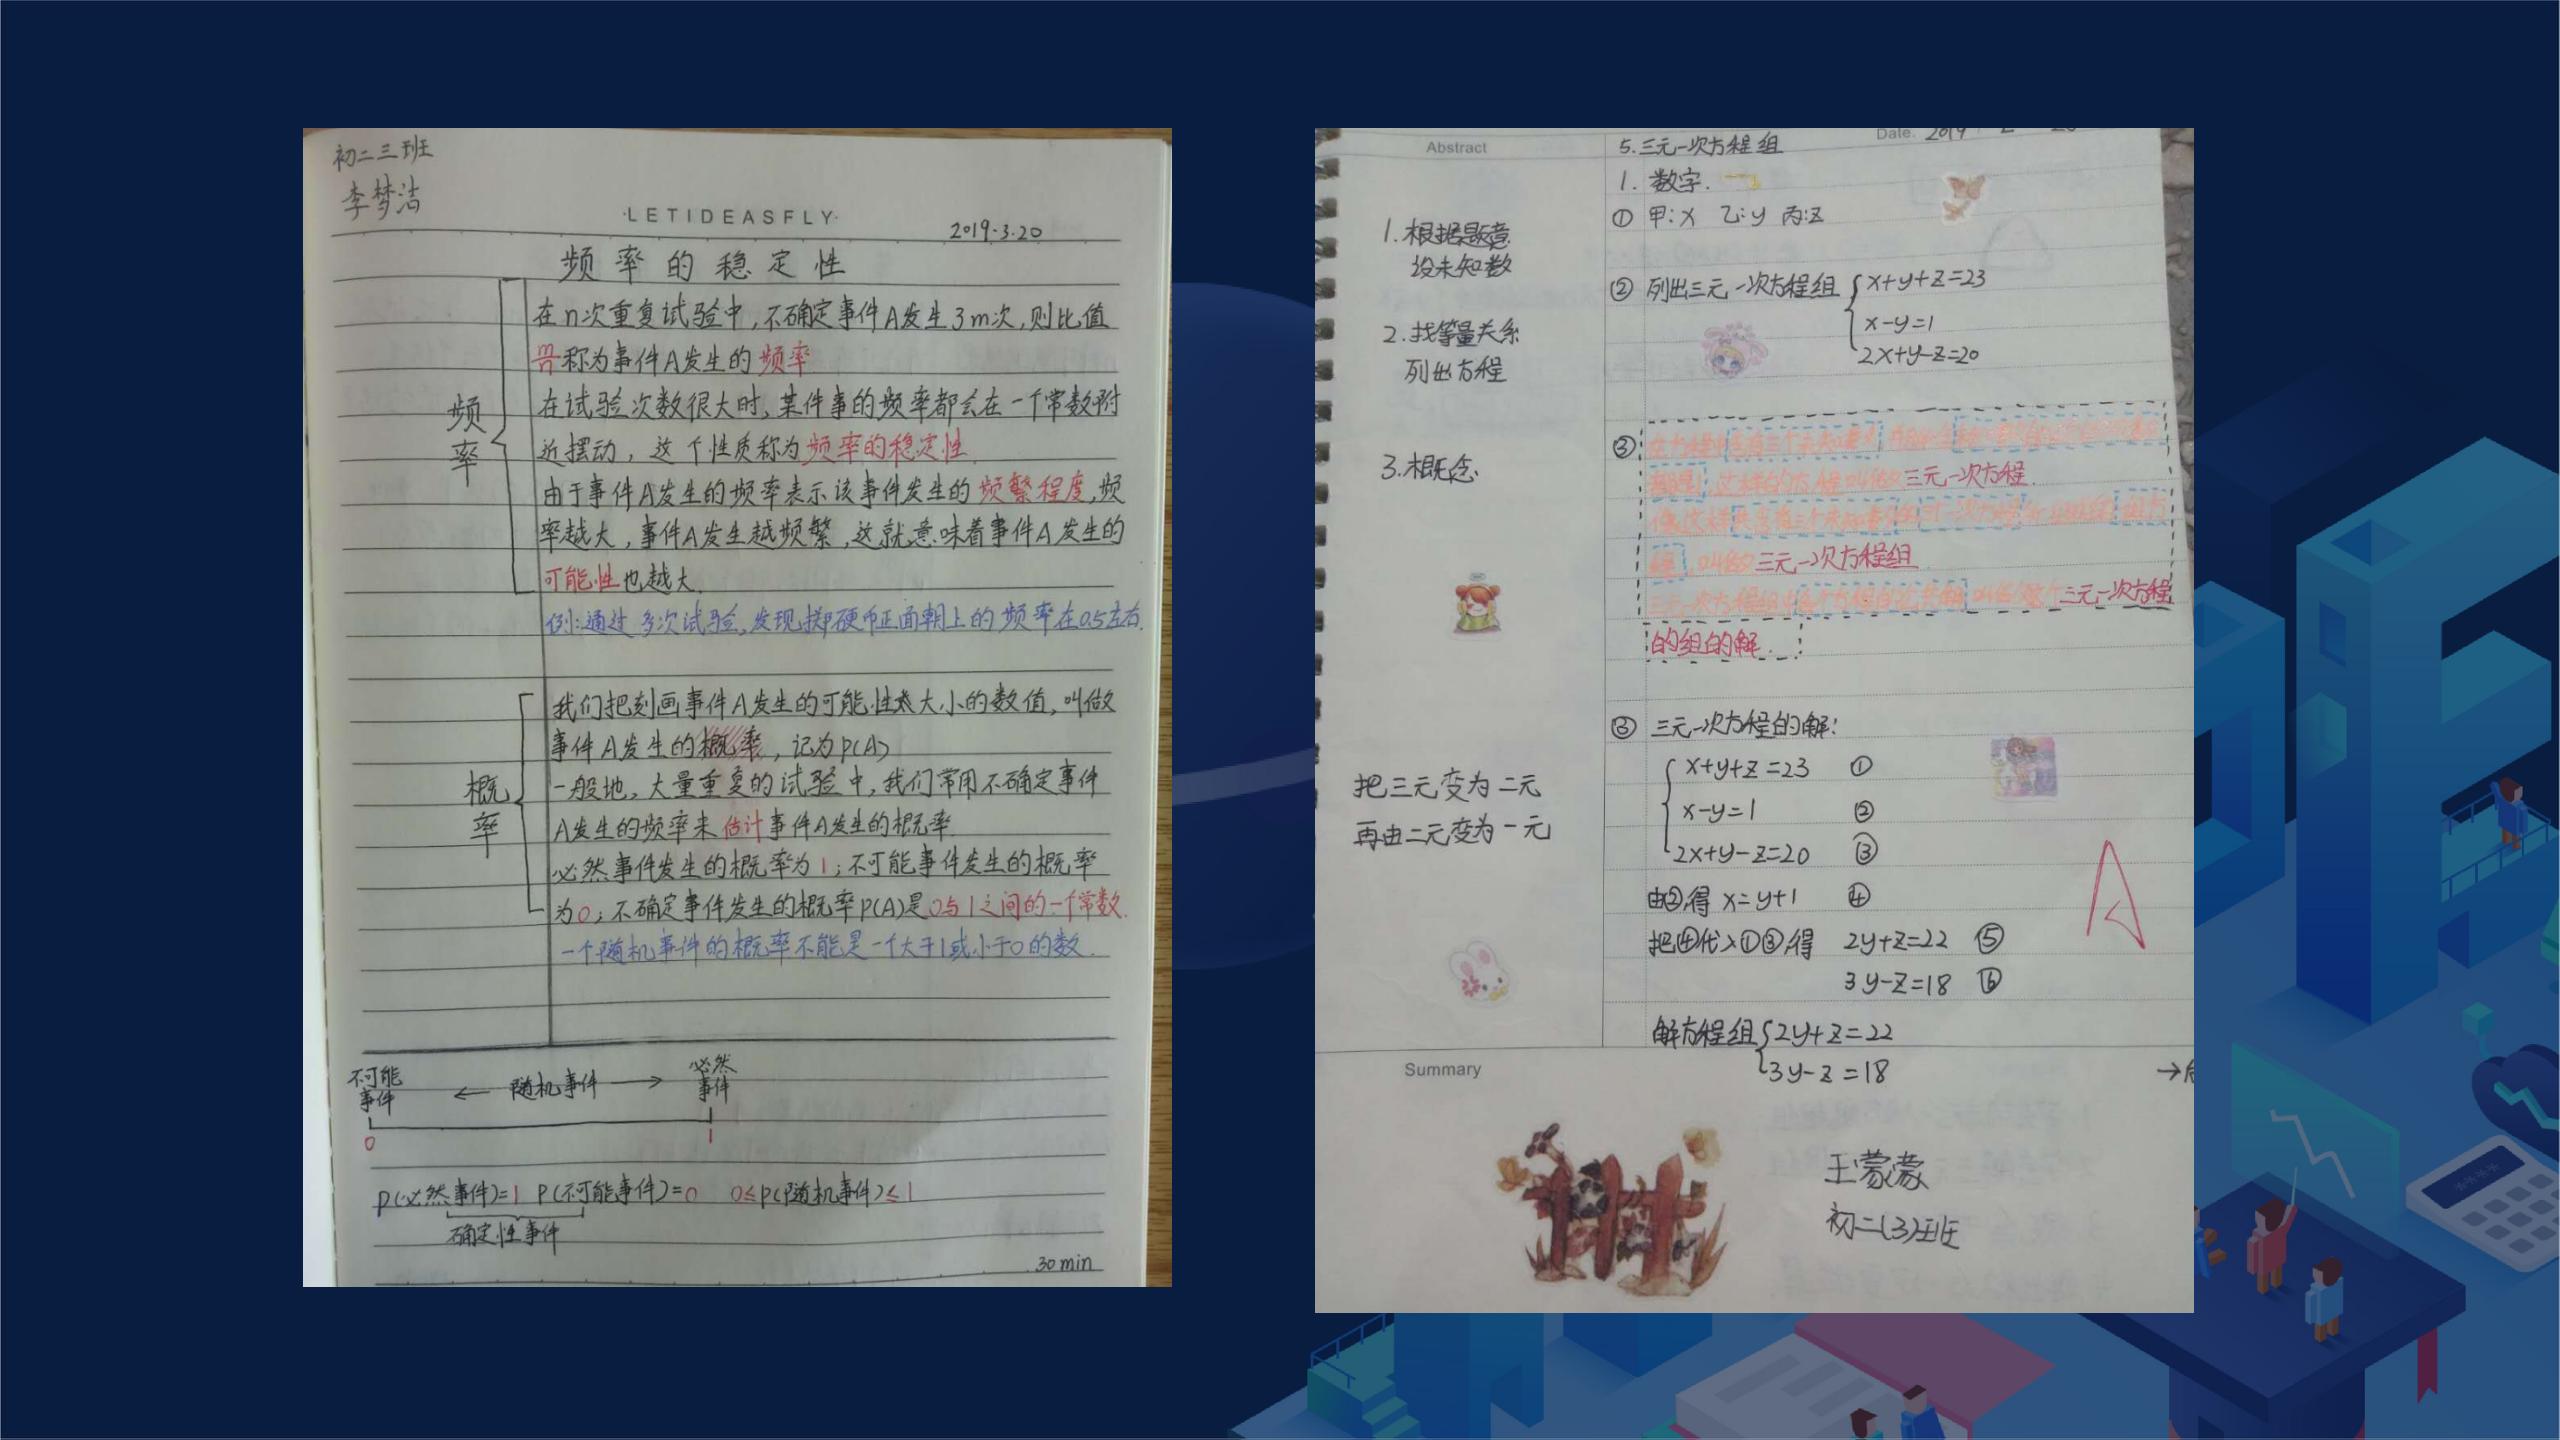 初二三班
李梦洁
·LETIDEASFLY·
2019.3.20
频率的稳定性
频率
在n次重复试验中,不确定事件A发生3m次,则比值
m/n称为事件A发生的频率
在试验次数很大时,某件事的频率都会在一个常数附
近摆动,这个性质称为频率的稳定性
由于事件A发生的频率表示该事件发生的频繁程度,频
率越大,事件A发生越频繁,这就意味着事件A发生的
可能性也越大.
例:通过多次试验,发现掷硬币正面朝上的频率在0.5左右.
概率
我们把刻画事件A发生的可能性大小的数值,叫做
事件A发生的概率,记为P(A)
一般地,大量重复的试验中,我们常用不确定事件
A发生的频率来估计事件A发生的概率
必然事件发生的概率为1;不可能事件发生的概率
为0;不确定事件发生的概率P(A)是0与1之间的一个常数.
一个随机事件的概率不能是一个大于1或小于0的数.
不可能事件 ← 随机事件 → 必然事件
0 1
P(必然事件)=1 P(不可能事件)=0 0≤P(随机事件)≤1
确定性事件
30min
Abstract
Date. 2019
5.三元一次方程组
1.数字.
① 甲:x 乙:y 丙:z
1.根据题意
设未知数
② 列出三元一次方程组 { x+y+z=23
x-y=1
2x+y-z=20
2.找等量关系
列出方程
3.概念
③ 在方程中含有三个未知数
这样的方程叫做三元一次方程.
像这样共含有三个未知数的三个一次方程
程,叫做三元一次方程组
三元一次方程组中各个方程的公共解,叫做这个三元一次方程
的组的解.
③ 三元一次方程的解:
{ x+y+z=23 ①
x-y=1 ②
2x+y-z=20 ③
把三元变为二元
再由二元变为一元
由②,得 x=y+1 ④
把④代入①③,得 2y+z=22 ⑤
3y-z=18 ⑥
A
解方程组 { 2y+z=22
3y-z=18
Summary
王蒙蒙
初二(3)班